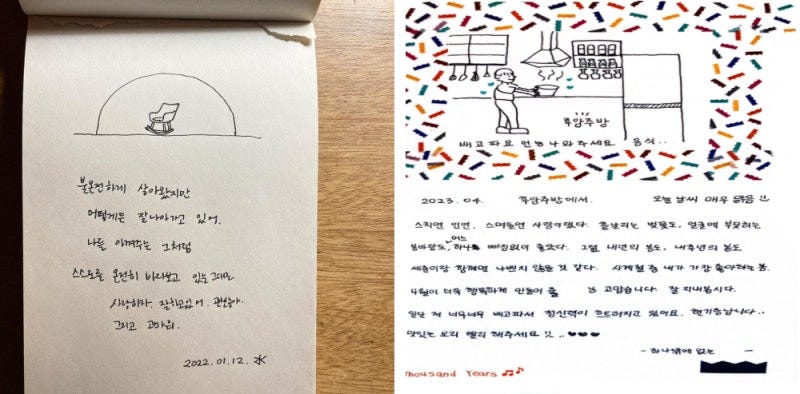 불온전하게 살아왔지만
어떻게든 잘 나아가고 있어.
나를 아껴주는 그처럼
스스로를 온전히 바라보고 있는 그대만
사랑하자. 잘하고있어. 괜찮아.
그리고 고마워.
2022.01.12. 水
후암주방
배고파요 언능 나와주세요 음식..
2023.04. 후암주방에서. 오늘 날씨 매우 맑음
스치면 인연, 스며들면 사랑이랬다. 흩날리는 벚꽃도, 얼굴에 부딪히는
봄바람도, 어느 하나 빠짐없이 좋았다. 그럼 내년의 봄도, 내후년의 봄도
함께면 나쁘지 않을 것 같다. 사계절 중 내가 가장 좋아하는 봄.
4월이 더욱 행복하게 만들어 줄 고맙습니다. 잘 지내봅시다.
일단 저 너무너무 배고파서 정신력이 흐트러지고 있어요. 현기증납니다..
맛있는 요리 빨리 해주세요 !! .. ♥♥♥
- 하나밖에 없는 -
Thousand Years ♫♪